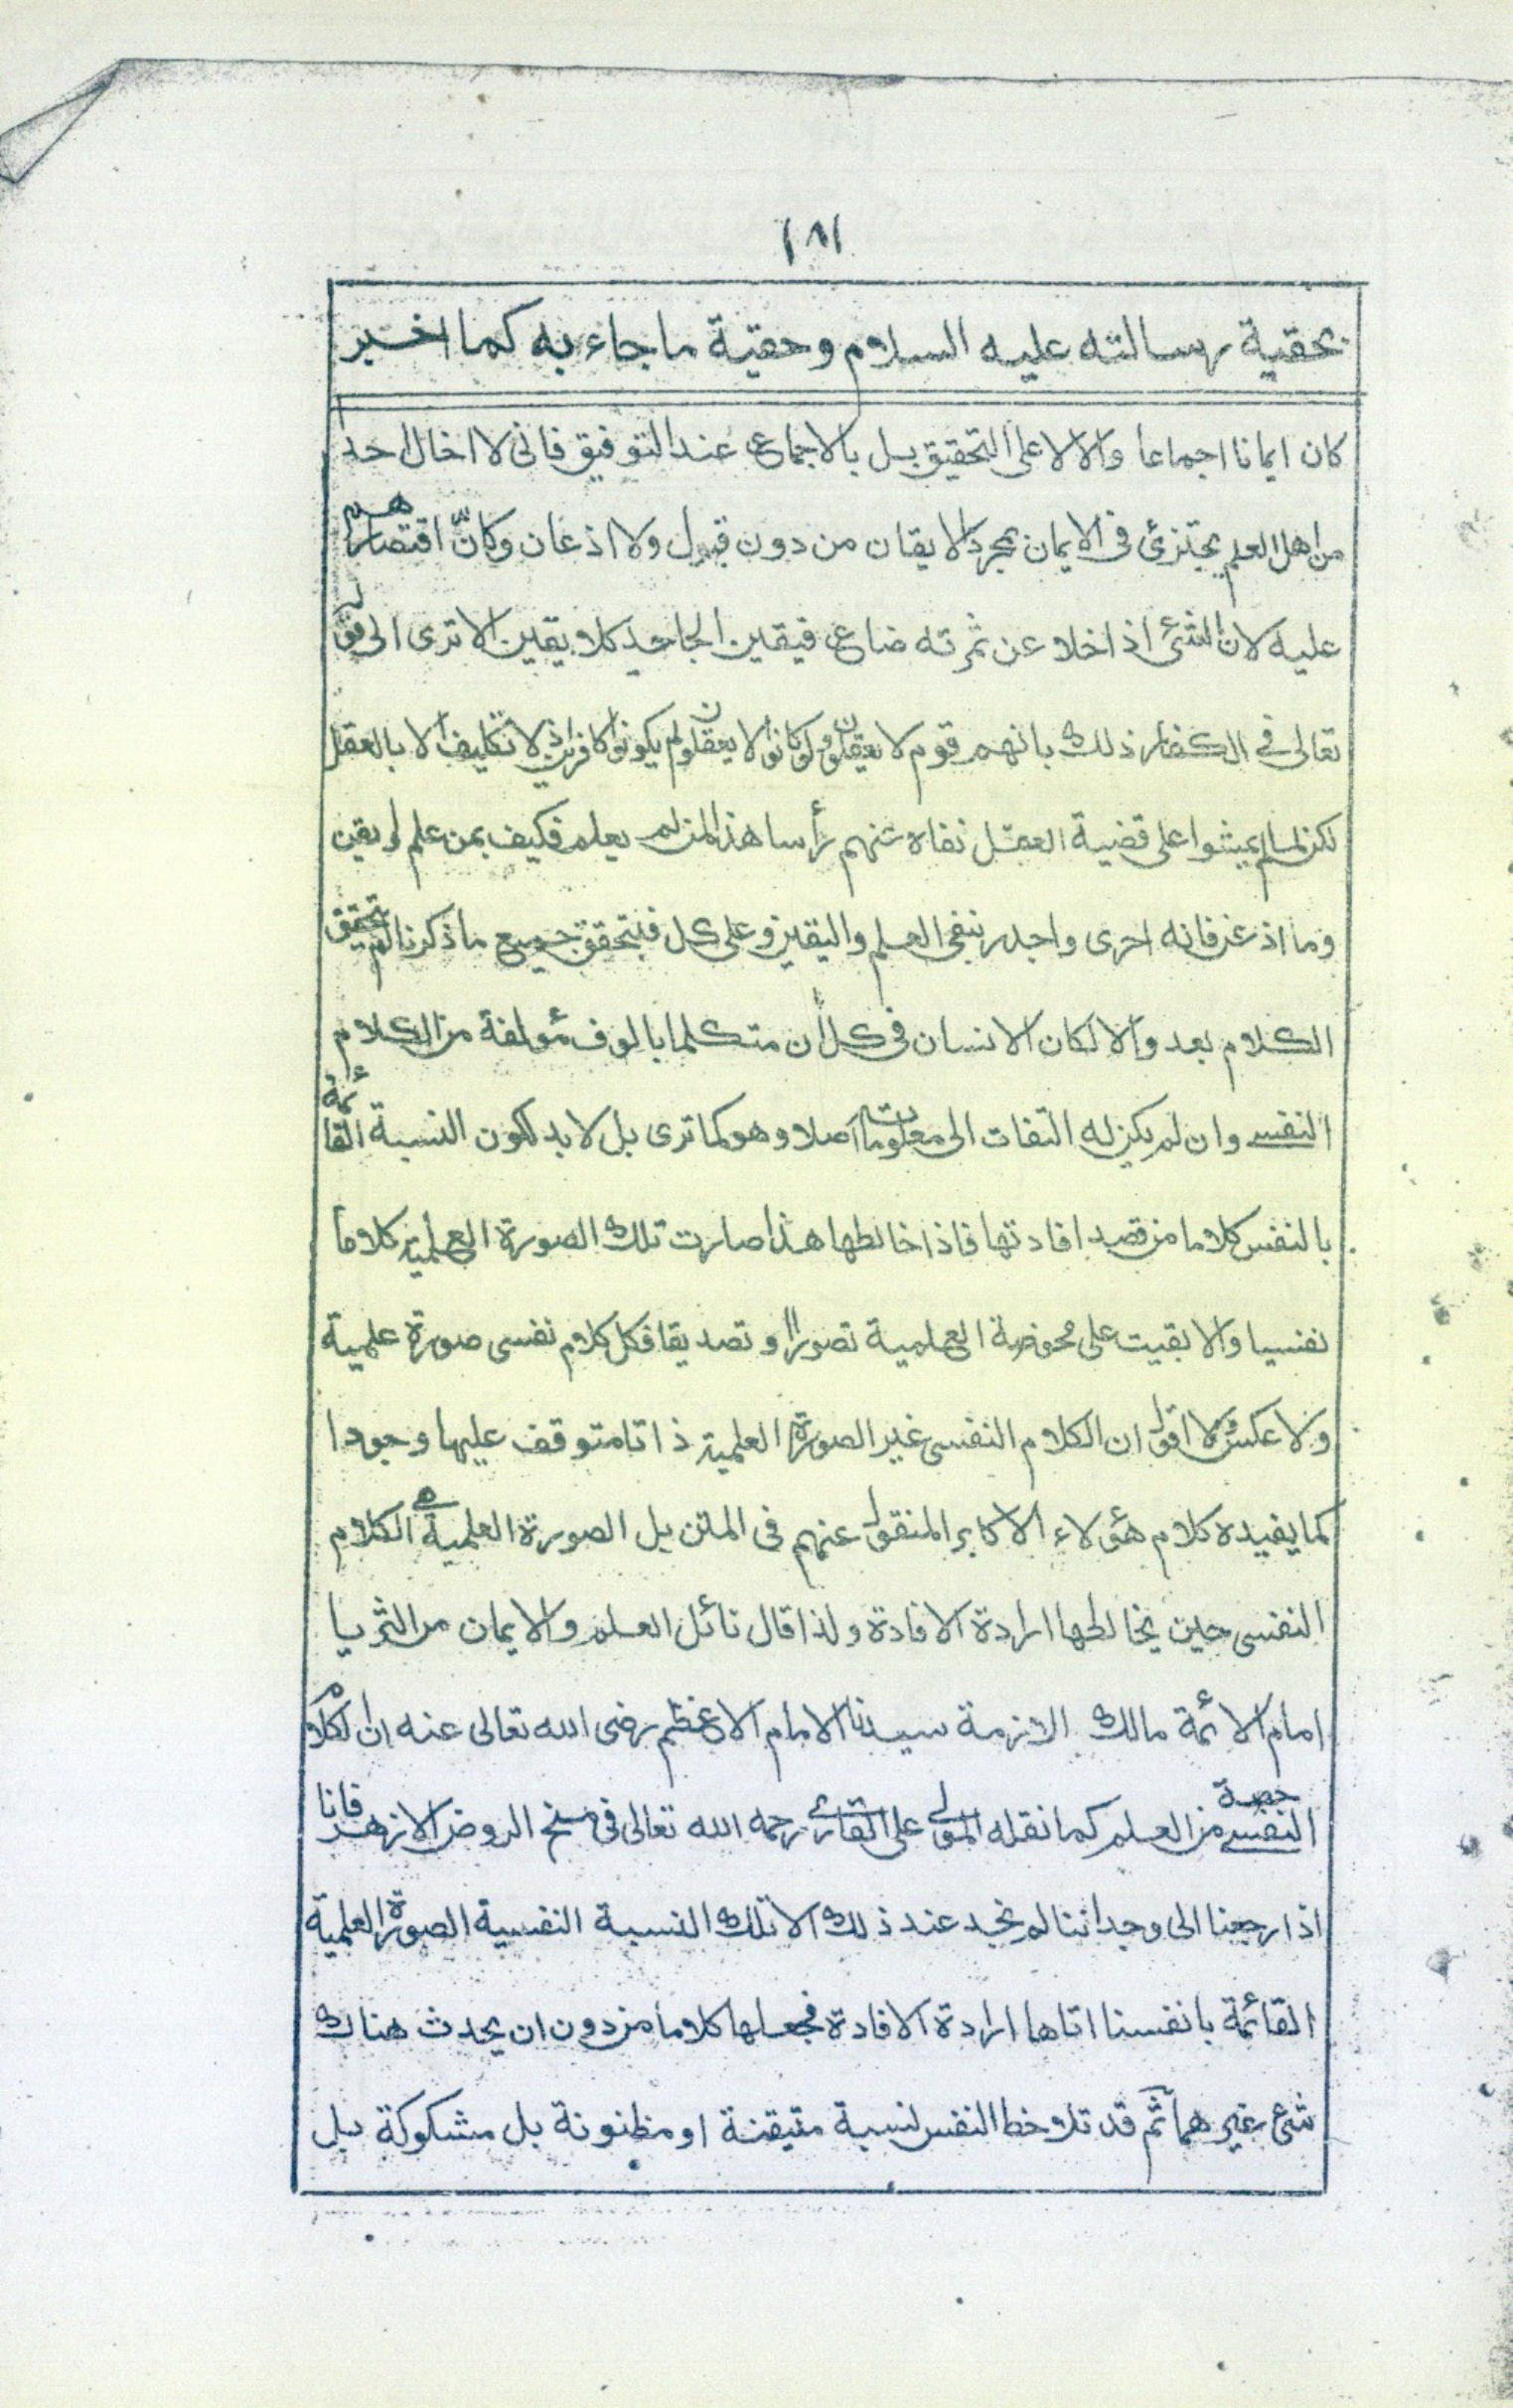 ١٨١
بحقية رسالته عليه السلام وحقية ما جاء به كما اخبر
كان ايمانا اجماعا والا لا على التحقيق بل بالاجماع عند التوفيق فانى لا اخال احدا
من اهل العلم يجتزئ فى الايمان بمجرد الايقان من دون قبول ولا اذعان وكانّ اقتصارهم
عليه لان الشئ اذا خلا عن ثمرته ضاع فيقين الجاحد كلا يقين الا ترى الى قوله
تعالى فى الكفار ذلك بانهم قوم لا يعقلون ولو كانوا لا يعقلون لم يكونوا كافرين اذ لا تكليف الا بالعقل
لكن لما لم يمشوا على قضية العقل نفاه عنهم رأسا هذا لمن لم يعلم فكيف بمن علم او يقن
وما اذعن فانه احرى واجدر بنفى العلم واليقين وعلى كل فبتحقق جميع ما ذكرنا لم يتحقق
الكلام بعد والا لكان الانسان فى كل ان متكلما بالوف مؤلفة من الكلام
النفسى وان لم يكن له التفات الى معلومات اصلا وهو كما ترى بل لا بد لكون النسبة القائمة
بالنفس كلاما من قصد افادتها فاذا خالطها هذا صارت تلك الصورة العلمية كلاما
نفسيا والا بقيت على محوضة العلمية تصورا و تصديقا فكل كلام نفسى صورة علمية
ولا عكس ولا اقول ان الكلام النفسى غير الصورة العلمية ذاتا متوقف عليها وجودا
كما يفيده كلام هؤلاء الاكابر المنقول عنهم فى المتن بل الصورة العلمية هى الكلام
النفسى حين يخالطها ارادة الافادة ولذا قال نائل العلم والايمان من الثريا
امام الائمة مالك الازمة سيدنا الامام الاعظم رضى الله تعالى عنه ان الكلام
النفسى حصة من العلم كما نقله المولى على القارى رحمه الله تعالى فى منح الروض الازهر فانا
اذا رجعنا الى وجداننا لم نجد عند ذلك الا تلك النسبة النفسية الصورة العلمية
القائمة بانفسنا اتاها ارادة الافادة فجعلها كلاما من دون ان يحدث هناك
شئ غيرهما ثم قد تلاحظ النفس نسبة متيقنة او مظنونة بل مشكوكة بل